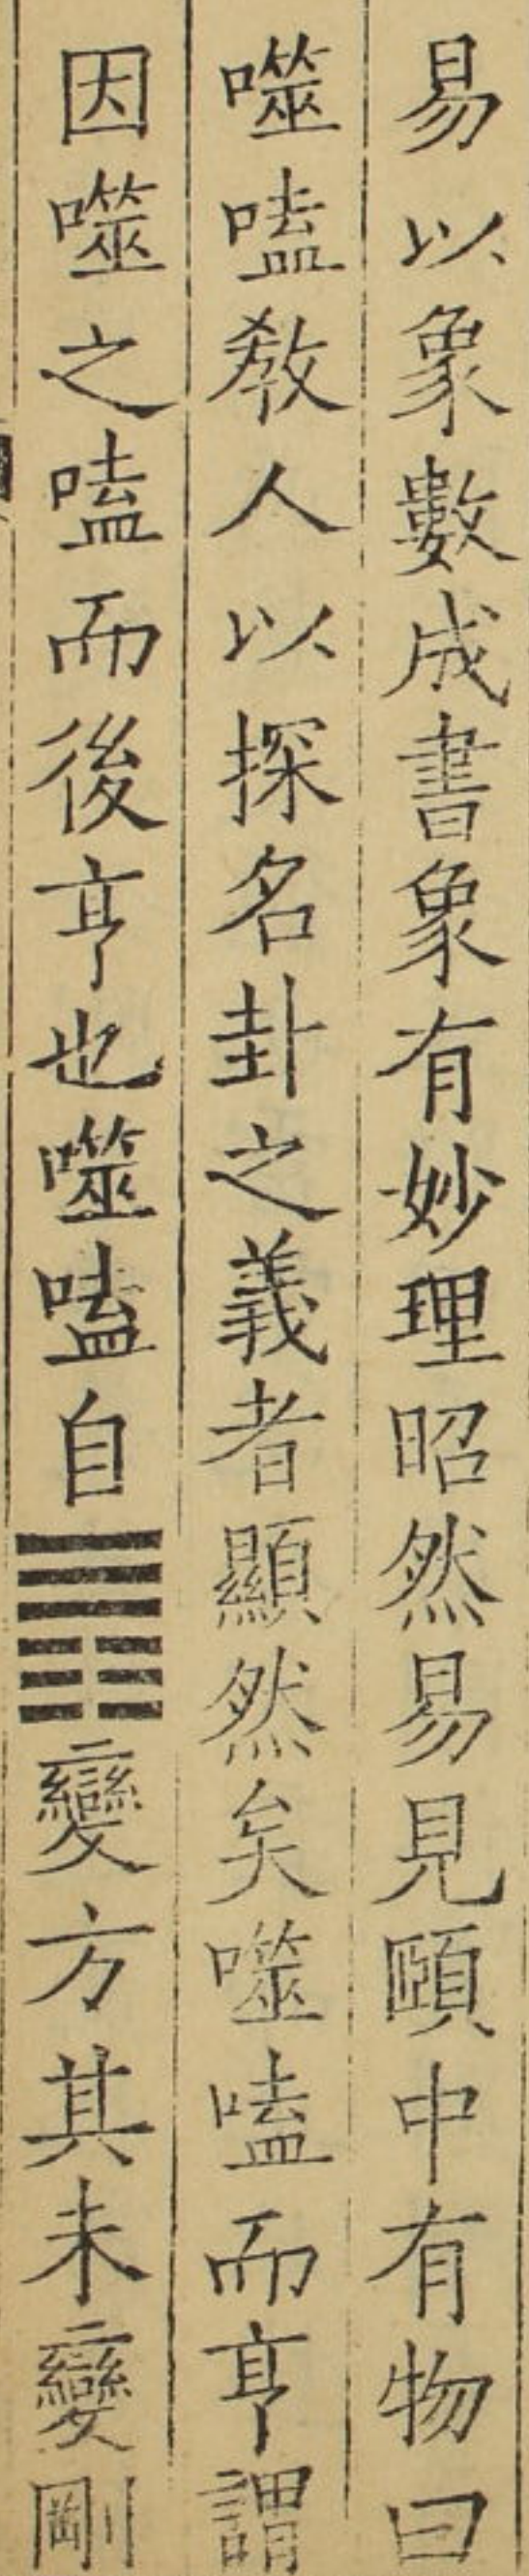 易以象數成書象有妙理昭然易見頤中有物曰
噬嗑教人以探名卦之義者顯然矣噬嗑而亨謂
因噬之嗑而後亨也噬嗑自䷋變方其未變剛